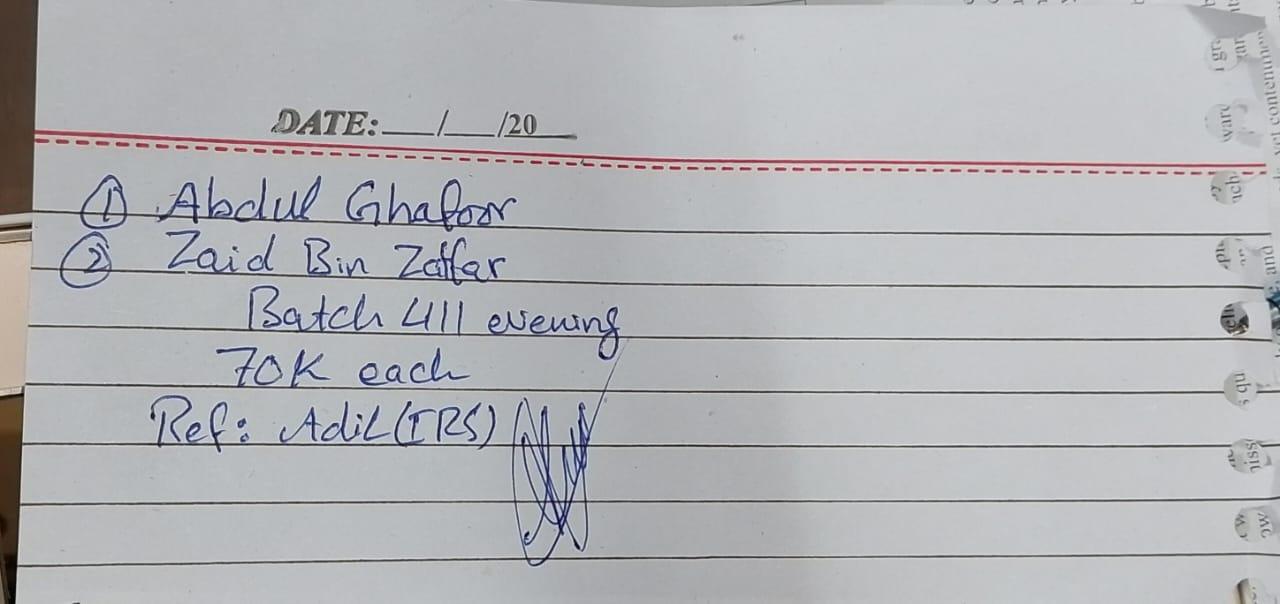 DATE:___/___/20___
① Abdul Ghafoor
② Zaid Bin Zaffar
Batch 411 evening
70K each
Ref: Adil (IRS)